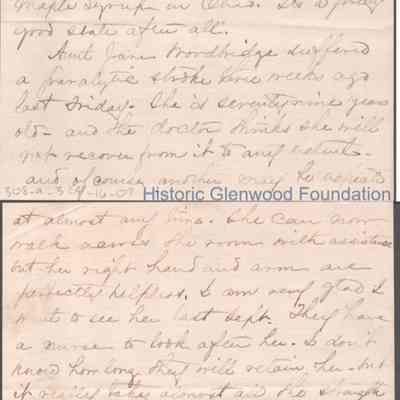 Maple Syrup in Ohio. Its a pretty
good state after all.
Aunt Jane Woodbridge suffered
a paralytic stroke two weeks ago
last Friday. She is seventynine years
old - and the doctor thinks she will
not recover from it to any extent -
and of course another may be
308-a-
Historic Glenwood Foundation
at almost any time. She can now
walk across the room with assistance
but her right hand and arm are
perfectly helpless. I am very glad I
went to see her last Sept. They have
a nurse to look after her. I don't
know how long they will retain her - but
it really takes almost all the strength